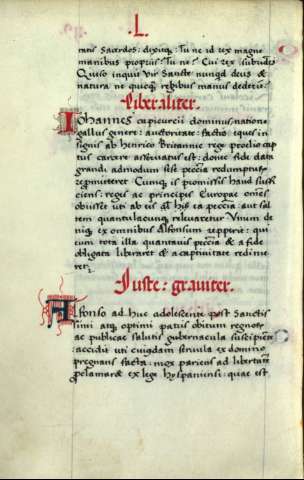 .L.
tatis Sacerdos: dixitq; : Tu ne id rex magne
manibus propriis? Tu ne? Cui rex subridēs
Quiso inquit Vir Sancte nunqd deus &
natura ne quicq regibus manus dederit?
Liberaliter.
Iohannes capicurcii dominus natione
gallus genere: auctoritate: factio eques in
signis ab Henrico Britannie rege proelio cap
tus carcere asservatus est: donec fide data
grandi admodum sese peccia redempturū
repromitteret. Cumq; is promissis haud suffi
ciens: reges ac principes Europae omnes
obiisset uti ab eis his ea peccia: aut sal
tem quantulacunq; relevaretur Unum de
niq; ex omnibus Alfonsum repperit: qui
eum tota illa quantavis peccia & a fide
obligata liberaret & a captivitate redime
ret.
Iuste: graviter.
Alfonso ad huc adolescente post Sanctis
simi atq; optimi patris obitum regnoꝝ
ac publicae salutis gubernacula suscipiente
accidit uti cuiusdam servula ex domino
pregnans facta: mox pariens ad libertatē
proclamaret ex lege hyspaniensi: quae est